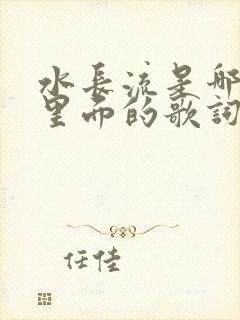 水長流是那
里面的歌詞
任佳